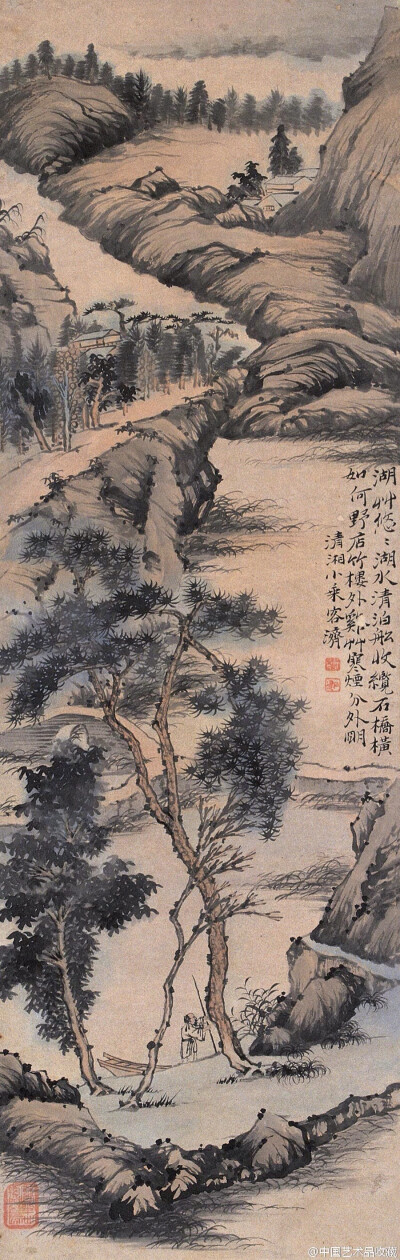 湖艸〻湖水清泊船收纜石橋橫
如何野店竹樓外艸寒煙分外明
清湘小乘客濟
@中国艺术品收藏